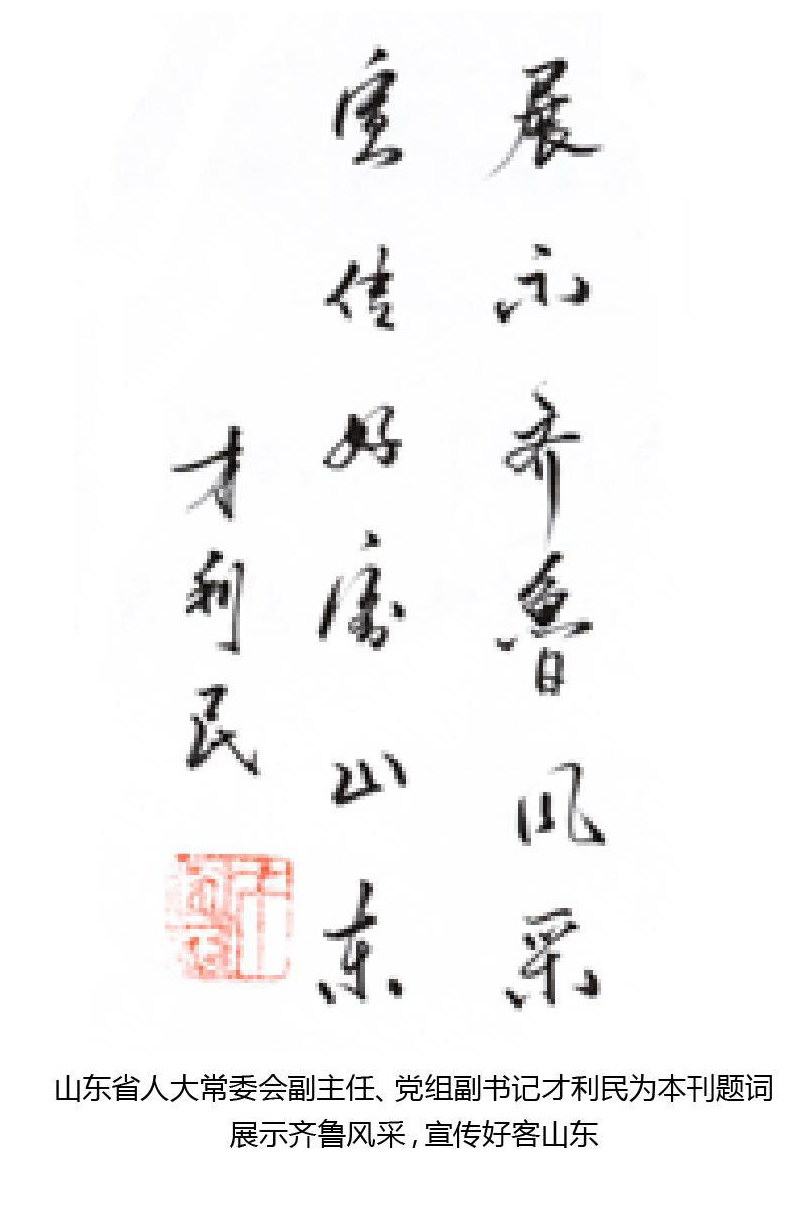 展示齐鲁风采
宣传好客山东
才利民
山东省人大常委会副主任、党组副书记才利民为本刊题词
展示齐鲁风采,宣传好客山东